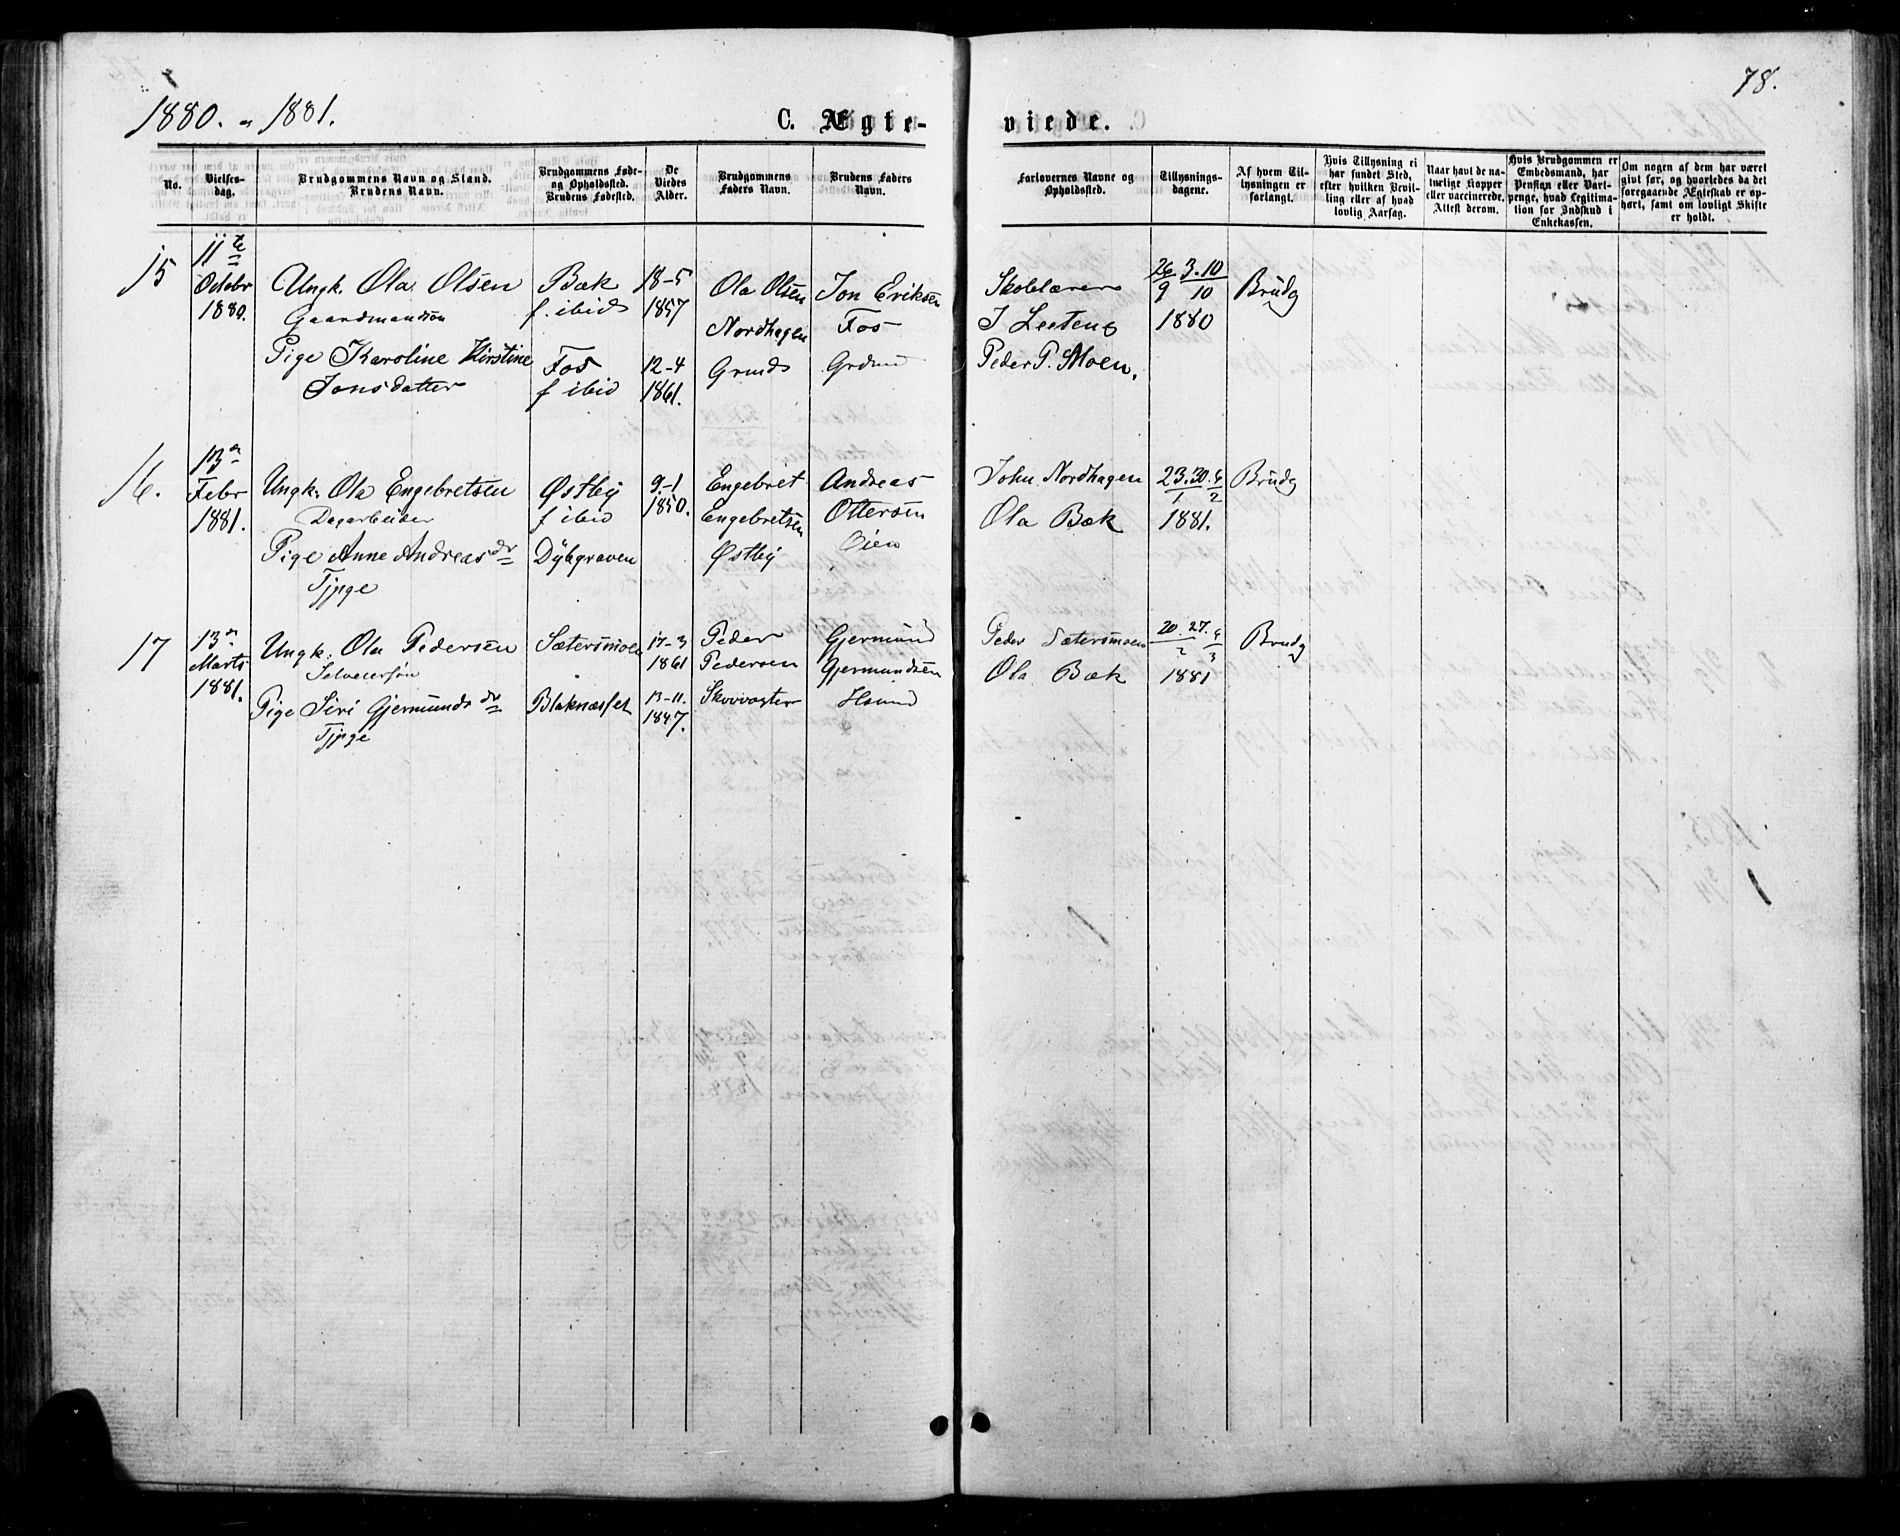 78.
1880. " 1881.
C. Ægteviede.
No.
Vielsesdag.
Brudgommens Navn og Stand. Brudens Navn.
Brudgommens Føde- og Opholdssted. Brudens Fødested.
De Viedes Alder.
Brudgommens Faders Navn.
Brudens Faders Navn.
Forlovernes Navne og Opholdssted.
Tillysningsdagene.
Af hvem Tillysningen er forlangt.
Hvis Tillysning ei har fundet Sted, efter hvilken Bevilling eller af hvad lovlig Aarsag.
Naar havt de naturlige Kopper eller vaccinerede. Attest derom.
Hvis Brudgommen er Embedsmand, har Pension eller Vartpenge, hvad Legitimation for Indskud i Enkekassen.
Om nogen af dem har været givt før, og hvorledes da det foregaaende Ægteskab er ophørt, samt om lovligt Skifte er holdt.
15
11te October 1880.
Ungk. Ola Olsen
Gaardmandsøn
Pige Karoline Kirstine
Jonsdatter
Bæk
f. ibid
Fos
f ibid
18-5
1857
12-4
1861.
Ola Olsen
Nordhagen
Grds
Jon Eriksen
Fos
Grdm
Skolelærer
J Leeteng
Peder P. Moen.
26/9 3.10/10
1880
Brudg
16.
13de Febr 1881.
Ungk. Ola Engebretsen
Dagarbeider
Pige Anne Andreasdr
Tjpge
Østby
f ibid
Dybgraven
9-1
1850.
Engebret
Engebretsen
Østby
Andreas
Ottersen
Øien
John Nordhagen
Ola Bæk
23.30/1 6/2
1881.
Brudg
17
13de Marts 1881.
Ungk. Ola Pedersen
Selveiersøn
Pige Siri Gjermundsdr
Tjpge
Sætersmoen
Blaknæsset
17-3
1861
13-11.
1847.
Peder
Pedersen
Skovvogter
Gjermund
Gjermundsen
Husmd
Peder Sætersmoen
Ola Bæk
20.27/2 6/3
1881
Brudg